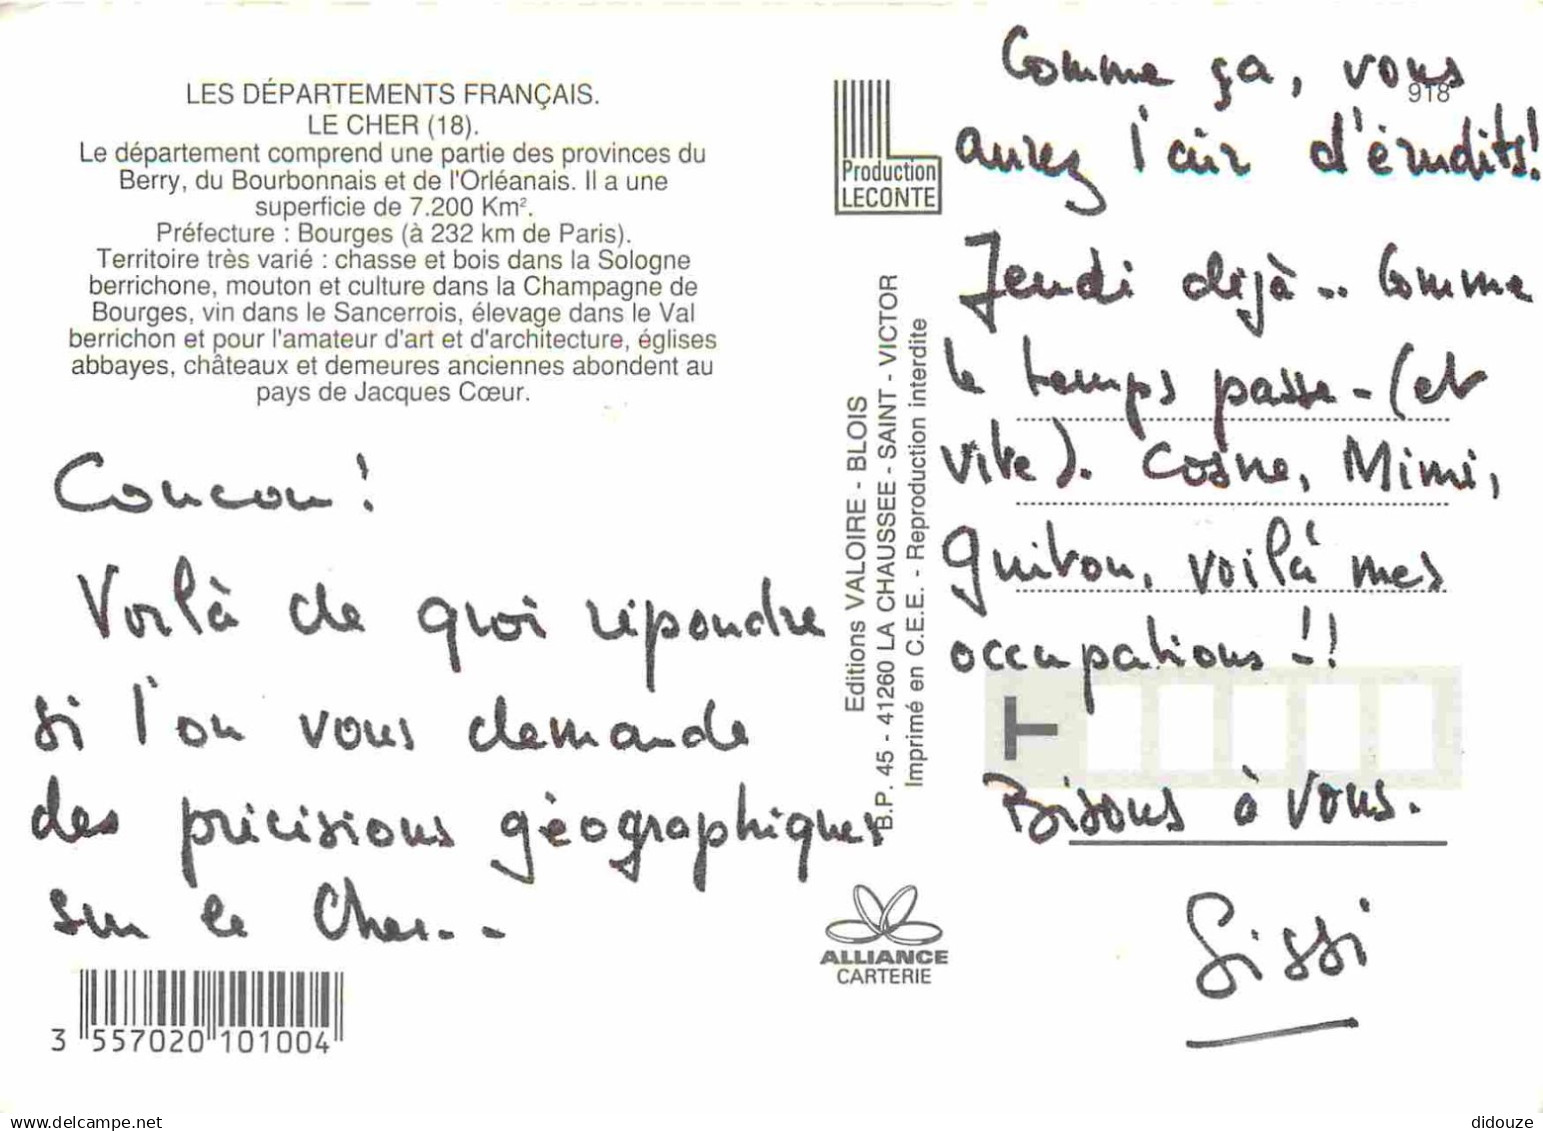 LES DÉPARTEMENTS FRANÇAIS.
LE CHER (18).
Le département comprend une partie des provinces du
Berry, du Bourbonnais et de l'Orléanais. Il a une
superficie de 7.200 Km².
Préfecture : Bourges (à 232 km de Paris).
Territoire très varié : chasse et bois dans la Sologne
berrichone, mouton et culture dans la Champagne de
Bourges, vin dans le Sancerrois, élevage dans le Val
berrichon et pour l'amateur d'art et d'architecture, églises
abbayes, châteaux et demeures anciennes abondent au
pays de Jacques Cœur.
Coucou!
Voilà de quoi répondre
si l'on vous demande
des précisions géographiques
sur le Cher..
3 557020 101004
Production
LECONTE
Editions VALOIRE - BLOIS
B.P. 45 - 41260 LA CHAUSSEE - SAINT - VICTOR
Imprimé en C.E.E. - Reproduction interdite
ALLIANCE
CARTERIE
918
Comme ça, vous
aurez l'air d'érudits!
Jeudi déjà.. Comme
le temps passe - (et
vite). Cosne, Mimi,
Guiton, voilà mes
occupations!!
T
Bisous à vous.
Sissi
didouze